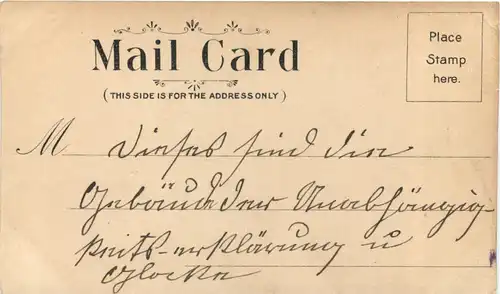 Mail Card
(THIS SIDE IS FOR THE ADDRESS ONLY)
Place
Stamp
here.
M Dieses sind die
Gebäude der Unabhängig-
keits-erklärung u
Glocke